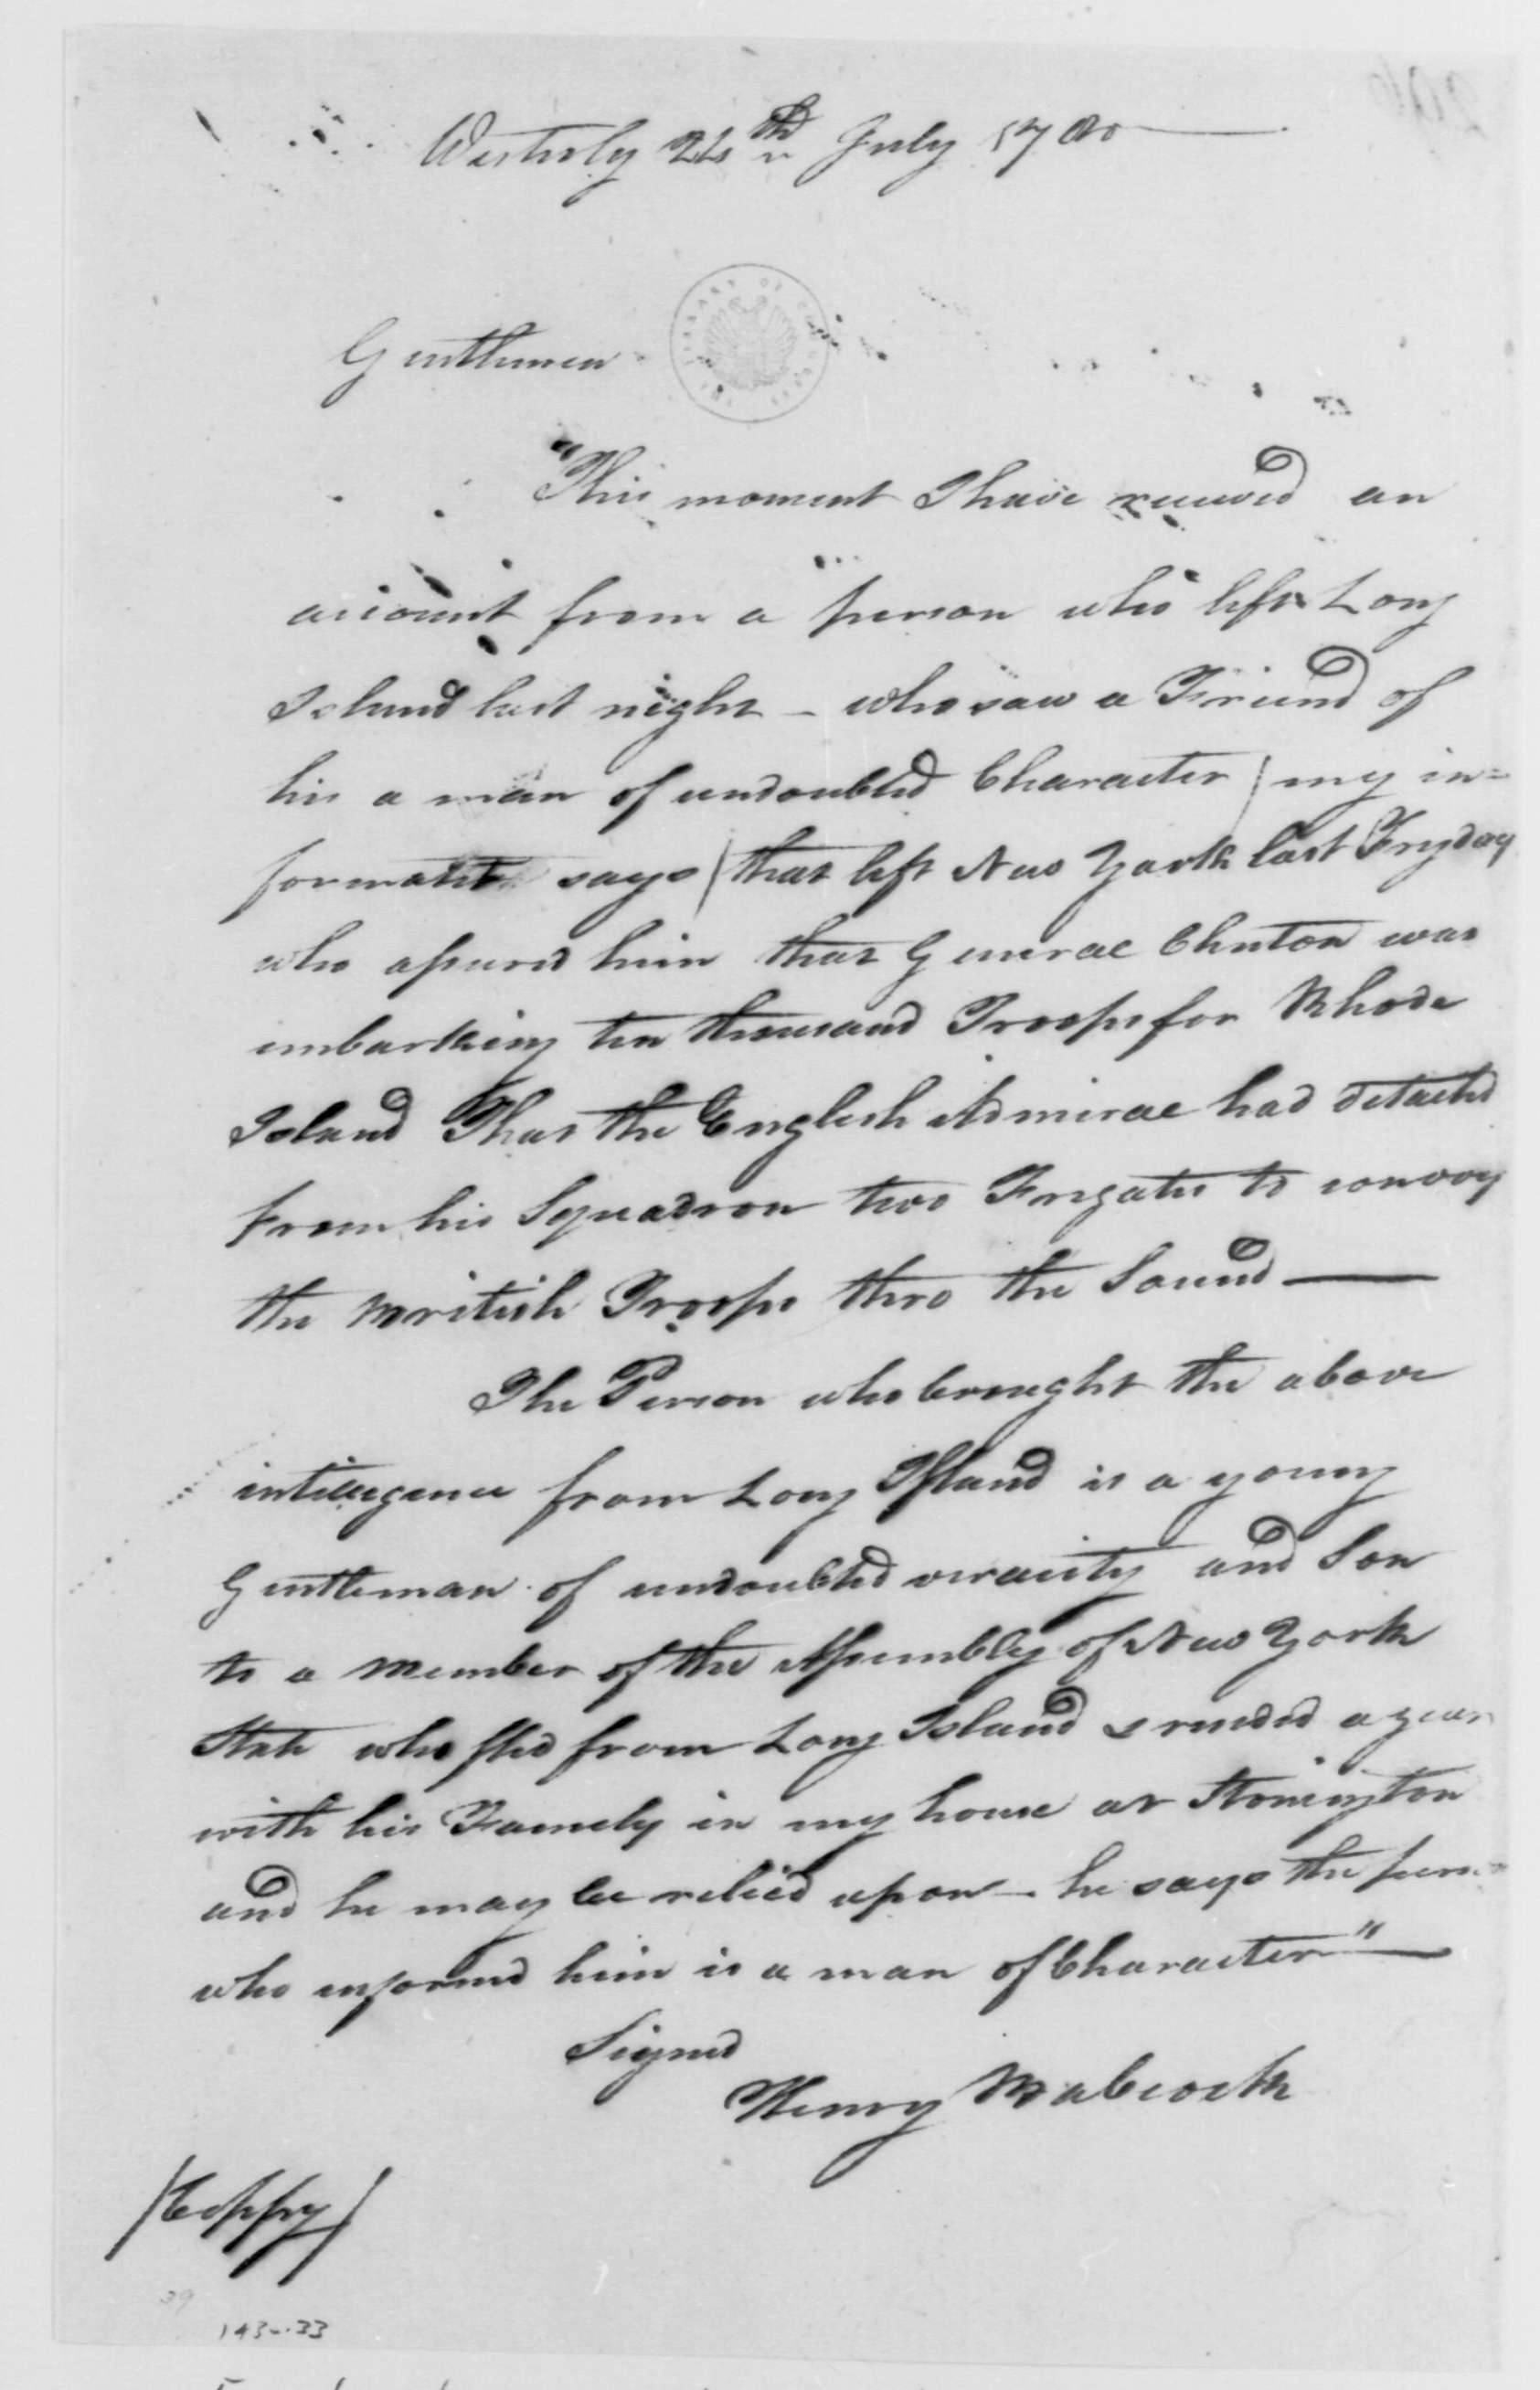 Westerly 24th July 1780
Gentlemen
"This moment I have received an
account from a person who left Long
Island last night - who saw a Friend of
his a man of undoubted Character / my in=
formant says / that left New York last Fryday
who assured him that General Clinton was
embarking ten thousand Troops for Rhode
Island That the English Admiral had detached
from his Squadron two Frigates to convoy
the British Troops thro the Sound —
The Person who brought the above
inteligence from Long Island is a young
Gentleman of undoubted veracity and Son
to a Member of the Assembly of New York
State who fled from Long Island & resided a year
with his Famely in my house at Stonington
and he may be relied upon - he says the person
who informd him is a man of Character" —
Signed
Henry Babcock
/Coppy/
39
143-.33